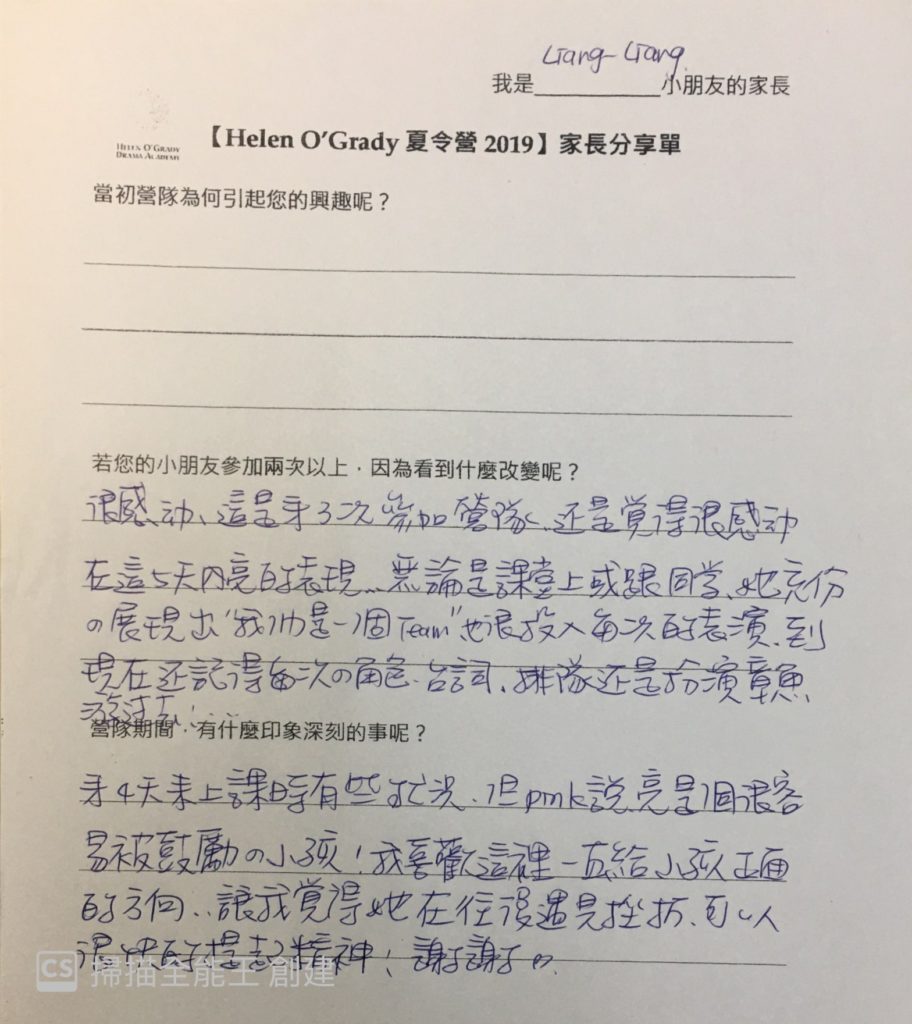 Liang-Liang
我是　　　　　小朋友的家長
HELEN O'GRADY
DRAMA ACADEMY
【Helen O'Grady 夏令營 2019】家長分享單
當初營隊為何引起您的興趣呢？
若您的小朋友參加兩次以上，因為看到什麼改變呢？
很感动、這是第3次參加營隊、还是覚得很感动
在這5天內亮的表現…無論是課堂上或跟同学、她充份
の展現出"我们是一個Team"也很投入每次的表演、到
現在还記得每次の角色、台詞、排隊还是扮演章魚
游过去！……
營隊期間，有什麼印象深刻的事呢？
第4天来上課時有些忙，但pink説亮是個很容
易被鼓勵の小孩！我喜歡這裡一直給小孩正面
的方向，讓我覚得她在往後遇見挫折、可以
很快的提起精神！謝謝
CS 掃描全能王 創建